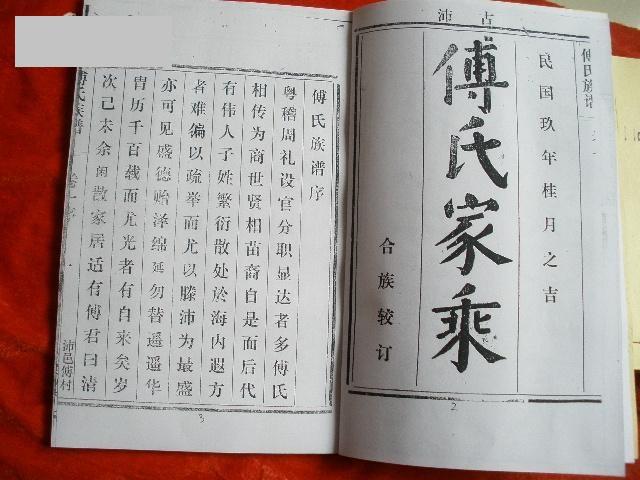 古沛
傅氏族谱
民国玖年桂月之吉
傅氏家乘
合族较订
2
傅氏族谱序
粤稽周礼设官分职显达者多傅氏
相传为商世贤相苗裔自是而后代
有伟人子姓繁衍散处於海内遐方
者难编以疏举而尤以滕沛为最盛
亦可见盛德贻泽绵延勿替遥遥华
胄历千百载而尤光者有自来矣岁
次己未余闲散家居适有傅君曰清
傅氏族谱
卷一序
一
沛邑傅村
3